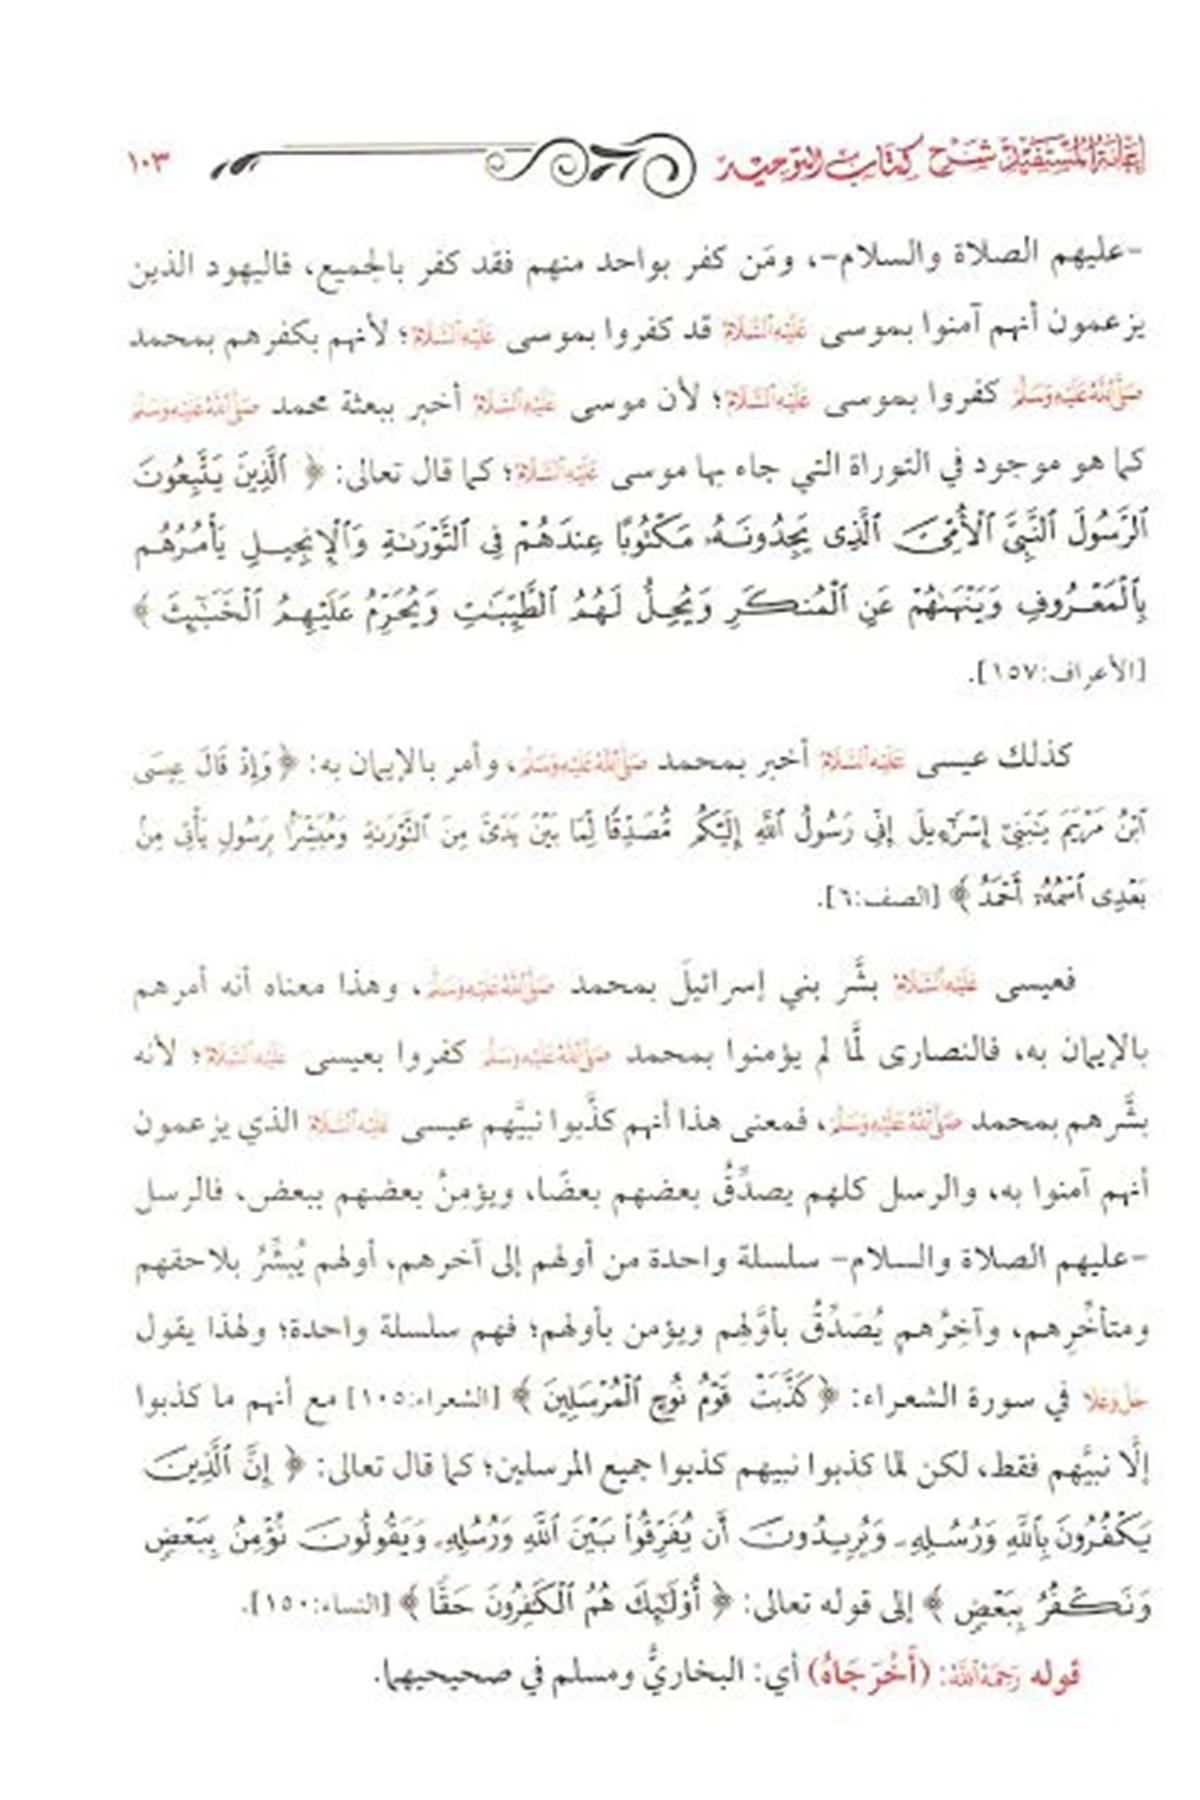 إعانة المستفيد شرح كتاب التوحيد ١٠٣
-عليهم الصلاة والسلام-، ومَن كفر بواحد منهم فقد كفر بالجميع، فاليهود الذين
يزعمون أنهم آمنوا بموسى عَلَيْهِ السَّلَامُ قد كفروا بموسى عَلَيْهِ السَّلَامُ؛ لأنهم بكفرهم بمحمد
صَلَّى اللَّهُ عَلَيْهِ وَسَلَّمَ كفروا بموسى عَلَيْهِ السَّلَامُ؛ لأن موسى عَلَيْهِ السَّلَامُ أخبر ببعثة محمد صَلَّى اللَّهُ عَلَيْهِ وَسَلَّمَ
كما هو موجود في التوراة التي جاء بها موسى عَلَيْهِ السَّلَامُ؛ كما قال تعالى: ﴿ ٱلَّذِينَ يَتَّبِعُونَ
ٱلرَّسُولَ ٱلنَّبِيَّ ٱلْأُمِّيَّ ٱلَّذِى يَجِدُونَهُۥ مَكْتُوبًا عِندَهُمْ فِى ٱلتَّوْرَىٰةِ وَٱلْإِنجِيلِ يَأْمُرُهُم
بِٱلْمَعْرُوفِ وَيَنْهَىٰهُمْ عَنِ ٱلْمُنكَرِ وَيُحِلُّ لَهُمُ ٱلطَّيِّبَٰتِ وَيُحَرِّمُ عَلَيْهِمُ ٱلْخَبَٰٓئِثَ ﴾
[الأعراف:١٥٧].
كذلك عيسى عَلَيْهِ السَّلَامُ أخبر بمحمد صَلَّى اللَّهُ عَلَيْهِ وَسَلَّمَ، وأمر بالإيمان به: ﴿ وَإِذْ قَالَ عِيسَى
ٱبْنُ مَرْيَمَ يَٰبَنِىٓ إِسْرَٰٓءِيلَ إِنِّى رَسُولُ ٱللَّهِ إِلَيْكُم مُّصَدِّقًا لِّمَا بَيْنَ يَدَىَّ مِنَ ٱلتَّوْرَىٰةِ وَمُبَشِّرًۢا بِرَسُولٍ يَأْتِى مِنۢ
بَعْدِى ٱسْمُهُۥٓ أَحْمَدُ ﴾ [الصف:٦].
فعيسى عَلَيْهِ السَّلَامُ بشَّر بني إسرائيلَ بمحمد صَلَّى اللَّهُ عَلَيْهِ وَسَلَّمَ، وهذا معناه أنه أمرهم
بالإيمان به، فالنصارى لَمَّا لم يؤمنوا بمحمد صَلَّى اللَّهُ عَلَيْهِ وَسَلَّمَ كفروا بعيسى عَلَيْهِ السَّلَامُ؛ لأنه
بشَّرهم بمحمد صَلَّى اللَّهُ عَلَيْهِ وَسَلَّمَ، فمعنى هذا أنهم كذَّبوا نبيَّهم عيسى عَلَيْهِ السَّلَامُ الذي يزعمون
أنهم آمنوا به، والرسل كلهم يصدِّقُ بعضهم بعضًا، ويؤمنُ بعضهم ببعض، فالرسل
-عليهم الصلاة والسلام- سلسلة واحدة من أولهم إلى آخرهم، أولهم يُبشِّرُ بلاحقهم
ومتأخِّرِهم، وآخِرُهم يُصَدِّقُ بأوَّلِهم ويؤمن بأولهم؛ فهم سلسلة واحدة؛ ولهذا يقول
جل وعلا في سورة الشعراء: ﴿ كَذَّبَتْ قَوْمُ نُوحٍ ٱلْمُرْسَلِينَ ﴾ [الشعراء:١٠٥] مع أنهم ما كذبوا
إلَّا نبيَّهم فقط، لكن لما كذبوا نبيهم كذبوا جميع المرسلين؛ كما قال تعالى: ﴿ إِنَّ ٱلَّذِينَ
يَكْفُرُونَ بِٱللَّهِ وَرُسُلِهِۦ وَيُرِيدُونَ أَن يُفَرِّقُوا۟ بَيْنَ ٱللَّهِ وَرُسُلِهِۦ وَيَقُولُونَ نُؤْمِنُ بِبَعْضٍ
وَنَكْفُرُ بِبَعْضٍ ﴾ إلى قوله تعالى: ﴿ أُو۟لَٰٓئِكَ هُمُ ٱلْكَٰفِرُونَ حَقًّا ﴾ [النساء:١٥٠].
قوله رَحِمَهُ اللَّهُ: (أَخْرَجَاهُ) أي: البخاريُّ ومسلم في صحيحيهما.